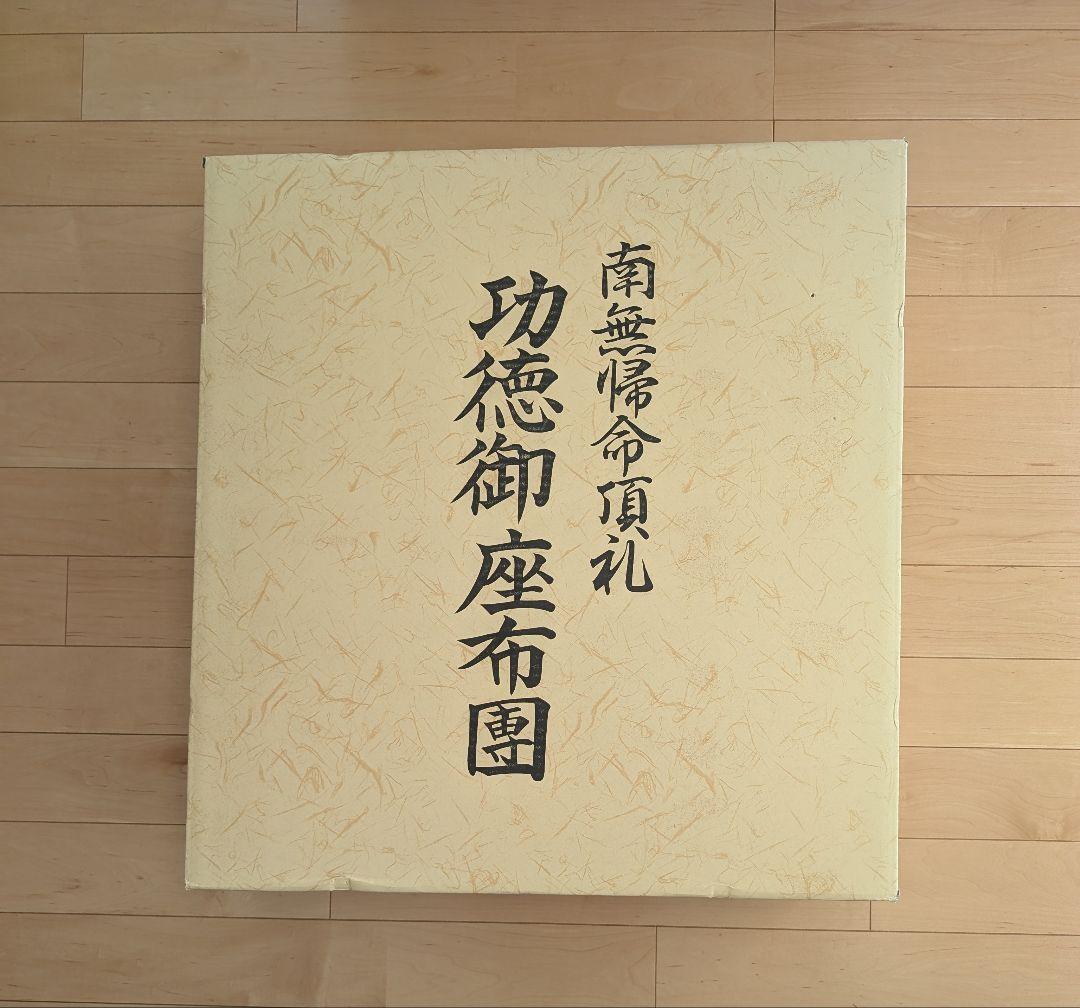 南無帰命頂礼
功徳御座布團